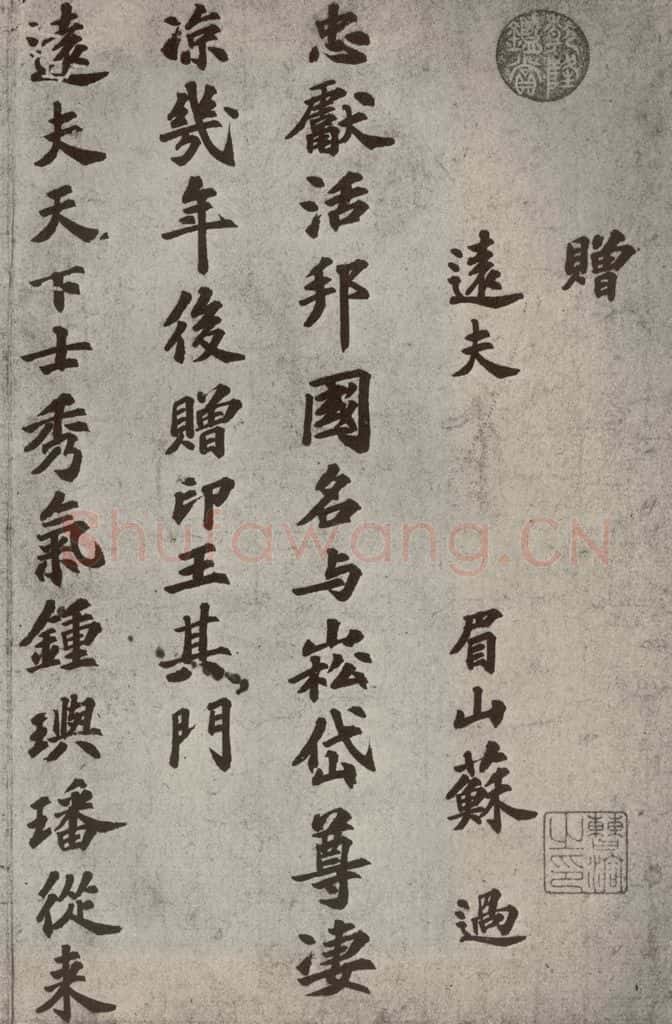 贈
遠夫
眉山蘇過
忠獻活邦國名与崧岱尊淒
凉幾年後贈印王其門
遠夫天下士秀氣鍾璵璠從来
乾隆鑑賞
Shufawang.CN